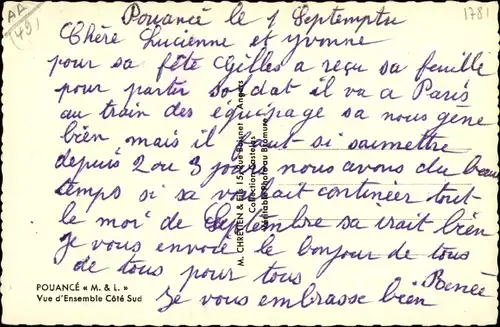 AA
(49)
1781
Pouancé le 1 Septemptu
Chère Lucienne et yvonne
pour sa fête Gilles a reçu sa feuille
pour partir soldat il va a Paris
au train des équipage sa nous gène
bien mais il faut si saumettre
depuis 2 ou 3 jours nous avons du beau
temps si sa voulait continéer tout
le moi de Septembre sa irait bien
je vous envoie le bonjour de tous
de tous pour tous
Renée
je vous embrasse bien
POUANCÉ « M. & L. »
Vue d'Ensemble Côté Sud
M. CHRETIEN & Fils 15, rue Bosnet - Angers
Collection Gastebois
Véritable Photo au Bromure